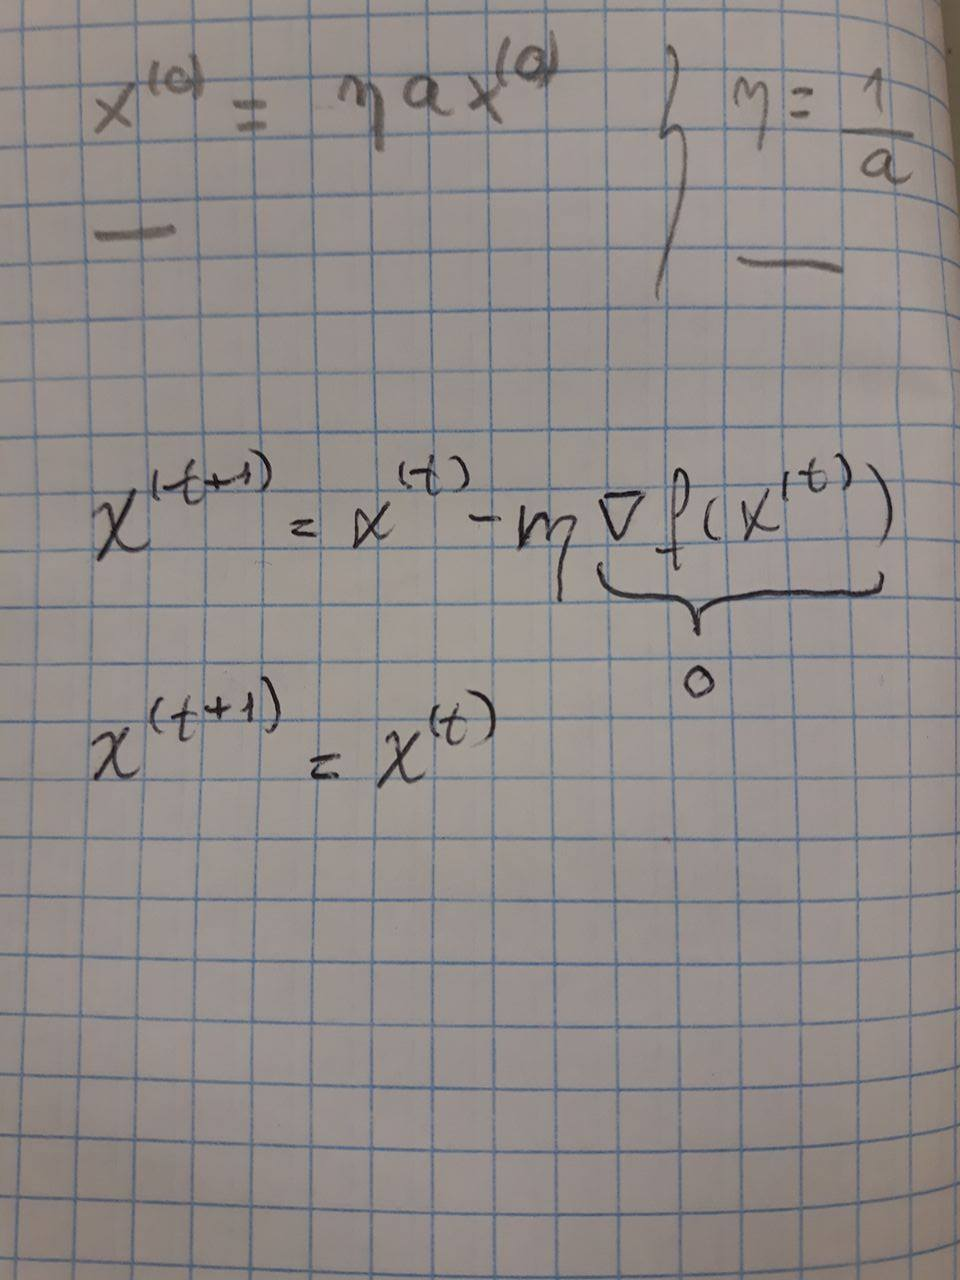 x^(0) = η a x^(0) } η = 1/a
x^(t+1) = x^(t) - η ∇ f(x^(t))
0
x^(t+1) = x^(t)